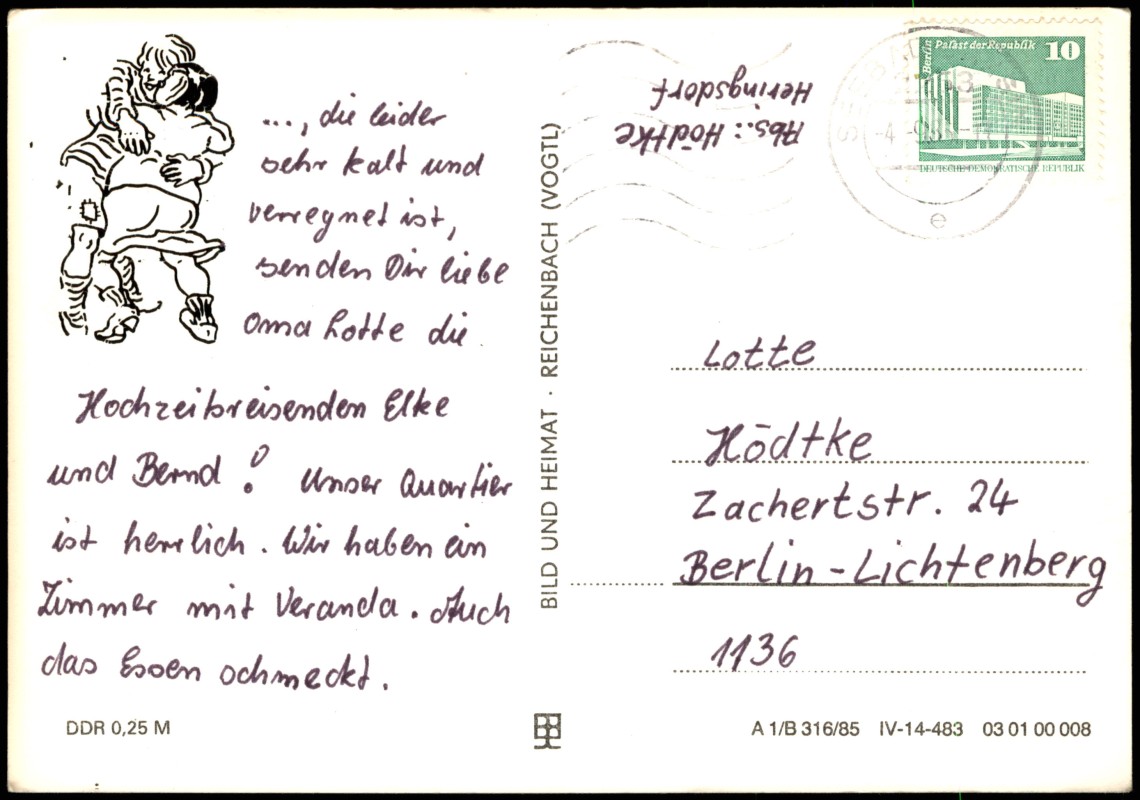 ..., die leider
sehr kalt und
verregnet ist,
senden Dir liebe
Oma Lotte die
Hochzeitsreisenden Elke
und Bernd! Unser Quartier
ist herrlich. Wir haben ein
Zimmer mit Veranda. Auch
das Essen schmeckt.
DDR 0,25 M
BILD UND HEIMAT · REICHENBACH (VOGTL)
Abs.: Hödtke
Heringsdorf
Berlin Palast der Republik 10
DEUTSCHE DEMOKRATISCHE REPUBLIK
e
Lotte
Hödtke
Zachertstr. 24
Berlin-Lichtenberg
1136
A 1/B 316/85 IV-14-483 03 01 00 008